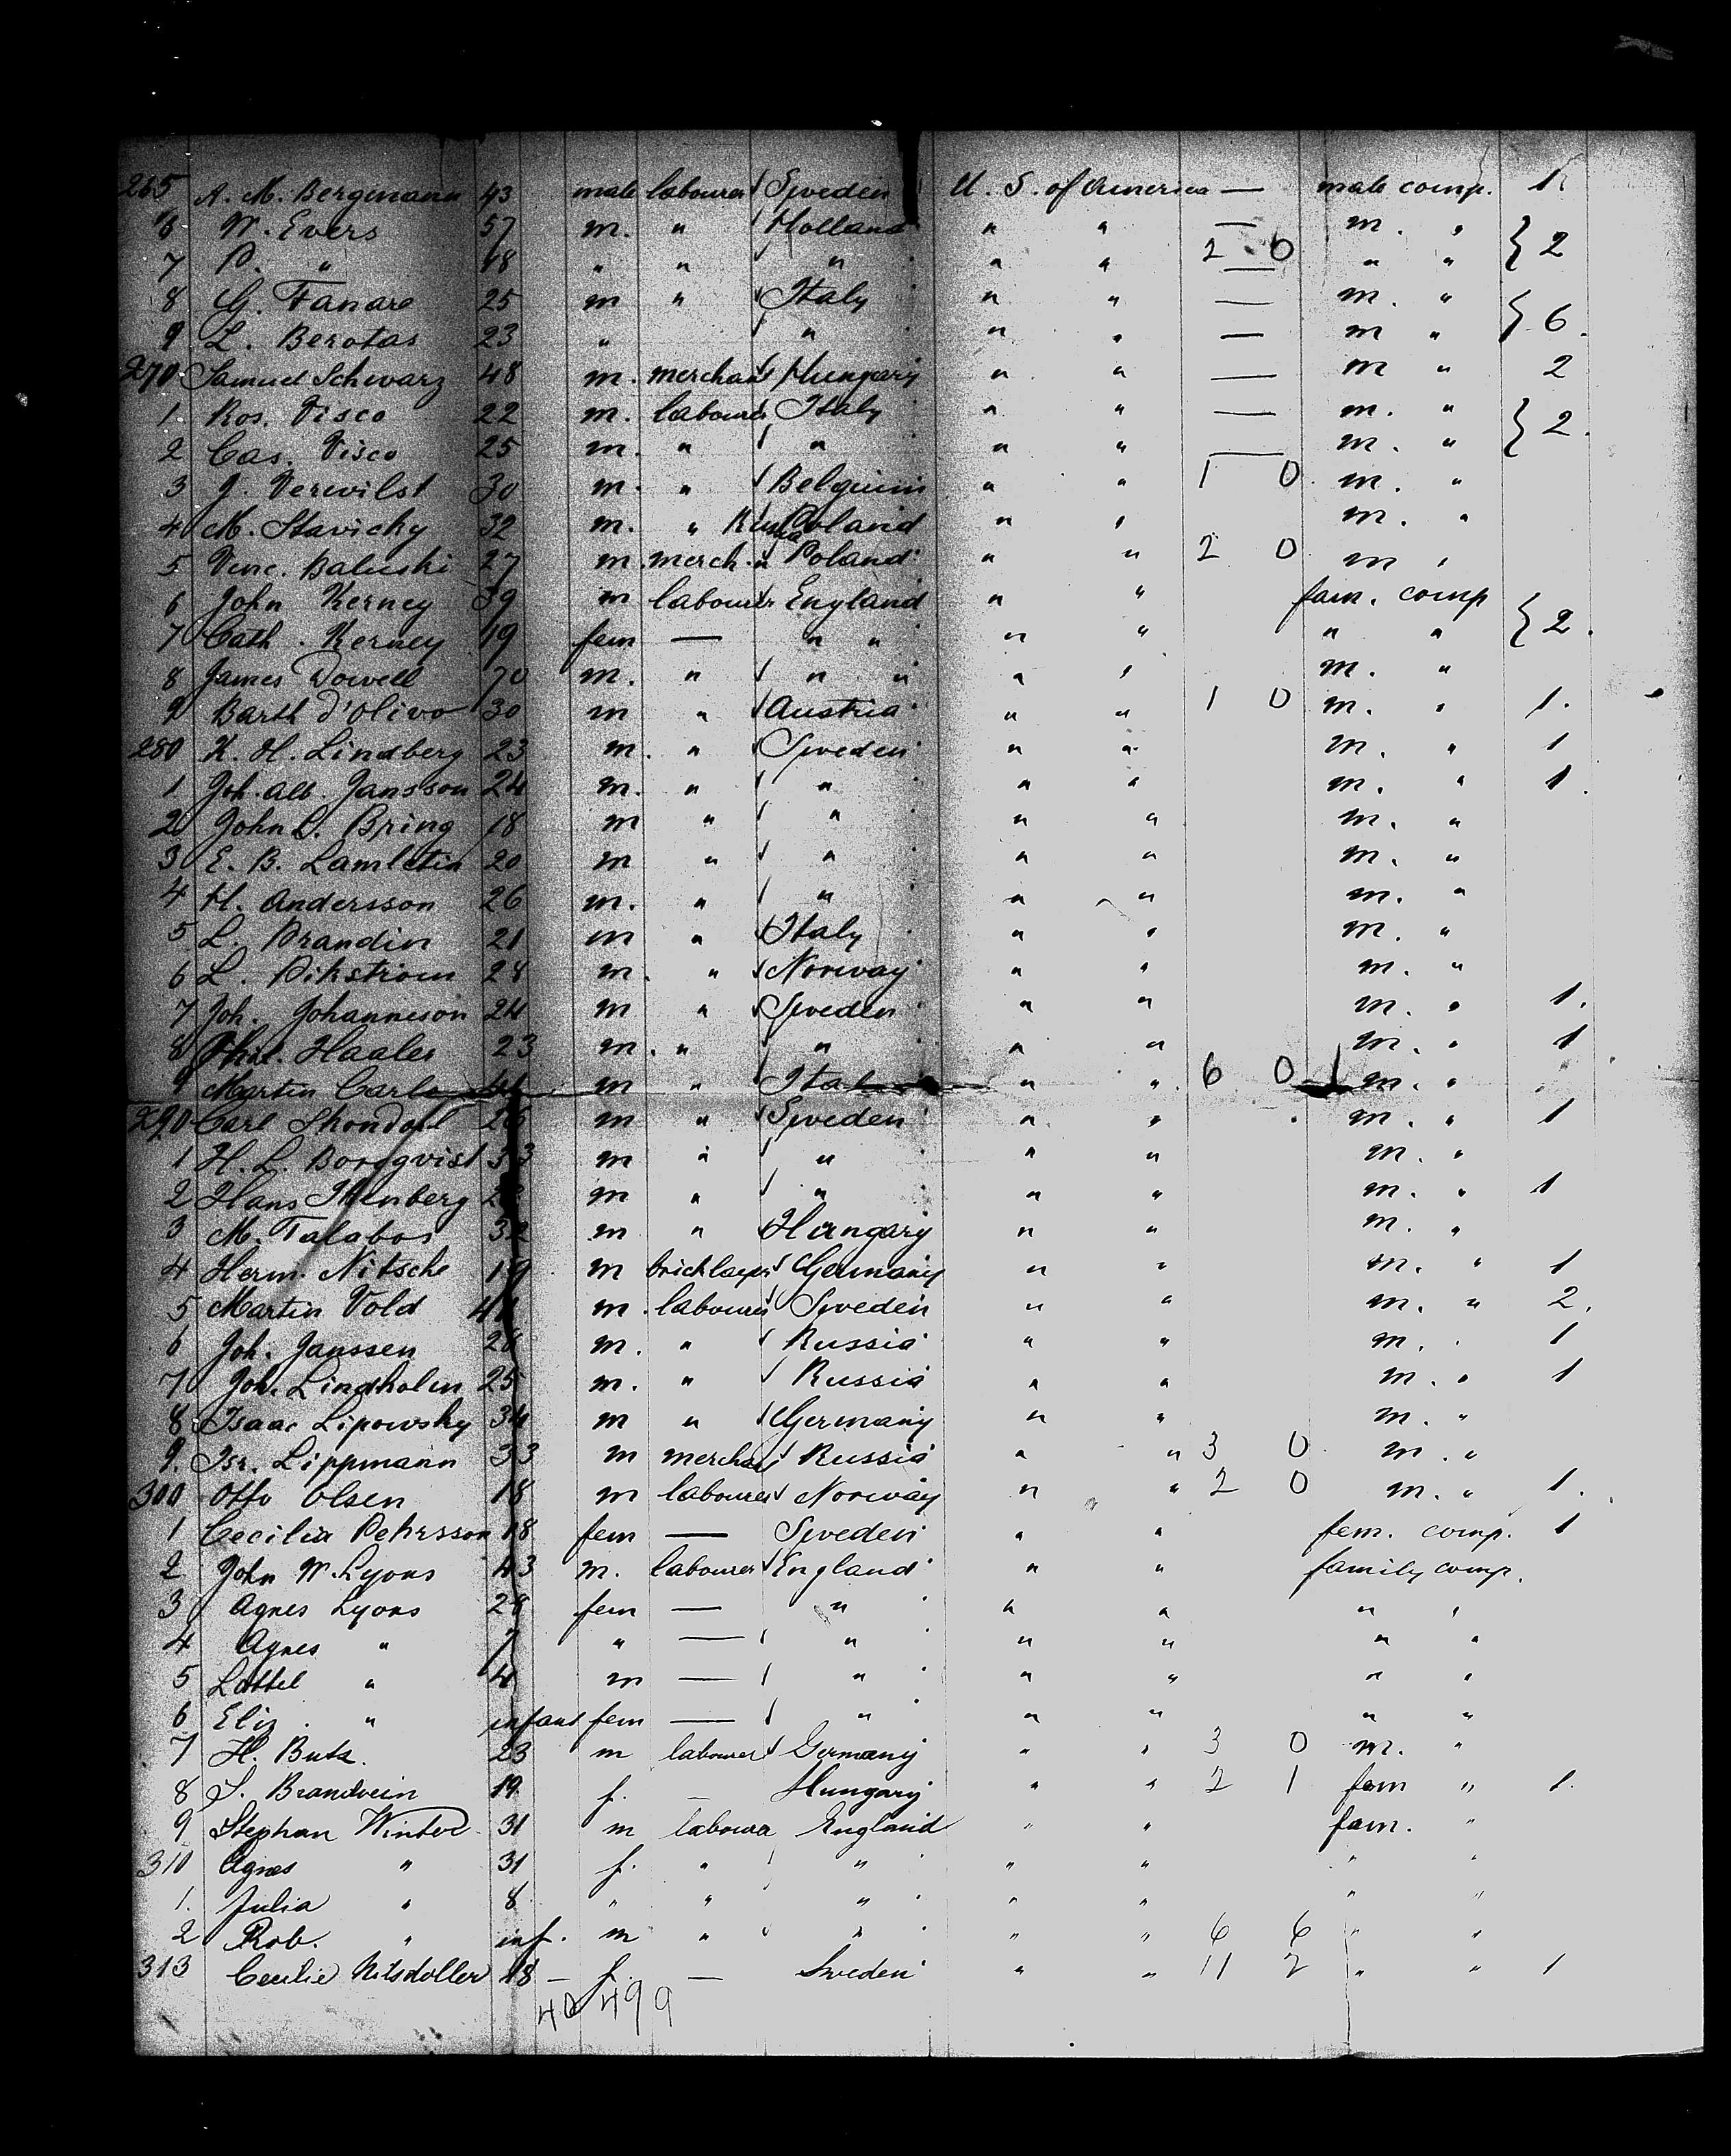 265 A. M. Bergmann 43 male labourer Sweden U. S. of America — male comp. 1.
6 W. Evers 57 m. " Holland " " — m. " } 2
7 P. " 18 " " " " " 2 0 — " "
8 G. Fanare 25 m " Italy " " — m. " } 6.
9 L. Berotas 23 " " " " — m "
270 Samuel Schwarz 48 m. merchant Hungary " " — m " 2
1 Ros. Visco 22 m. labourer Italy " " — m. " } 2.
2 Cas. Visco 25 m. " " " " — m. "
3 J. Verwilst 30 m. " Belguim " " 1 0 m. "
4 M. Stavichy 32 m. " Russia Poland " " m. "
5 Vinc. Baluski 27 m. merch. " Poland " " 2 0 m "
6 John Kerney 39 m labourer England " " fam. comp } 2.
7 Cath. Kerney 19 fem — " " " " " "
8 James Dowell 70 m. " " " " " m. "
9 Barth d'Olivo 30 m " Austria " " 1 0 m. " 1.
280 K. H. Lindberg 23 m. " Sweden " " m. " 1
1 Joh. Alb. Jansson 24 m. " " " " m. " 1.
2 John L. Bring 18 m " " " " m. "
3 E. B. Lamletin 20 m " " " " m. "
4 H. Andersson 26 m. " " " " m. "
5 L. Brandin 21 m " Italy " " m. "
6 L. Dikstrom 28 m. " Norway " " m. "
7 Joh. Johanneson 24 m " Sweden " " m. " 1.
8 Haales 23 m. " " " " m. " 1
9 Martin Carls m " Italy " " 6 0 m. "
290 Carl Skondahl 26 m " Sweden " " m. " 1
1 H. L. Borgqvist 33 m " " " " m. "
2 Hans m " " " " m. " 1
3 M. Talabos 32 m " Hungary " " m. "
4 Herm. Nitsche 19 m bricklayer Germany " " m. " 1
5 Martin Vold m. labourer Sweden " " m. " 2.
6 Joh. Janssen 28 m. " Russia " " m. 1
7 Joh. Lindholm 25 m. " Russia " " m. " 1
8 Isaac Lipowsky 34 m " Germany " " m. "
9. Isr. Lippmann 33 m merchant Russia " " 3 0 m. "
300 Otto Olsen 18 m labourer Norway " " 2 0 m. " 1.
1 Cecilia Pehrsson 18 fem — Sweden " " fem. comp. 1
2 John W. Lyons 43 m. labourer England " " family comp.
3 Agnes Lyons 28 fem — " " " " "
4 Agnes " 7 " — " " " " "
5 Lottel " 4 m — " " " " "
6 Eliz. " infant fem — " " " " "
7 H. Butz. 23 m labourer Germany " " 3 0 m. "
8 S. Brandvein 19 f. — Hungary " " 2 1 fem " 1.
9 Stephan Winter 31 m laboura England " " fam. "
310 Agnes " 31 f. " " " " " "
1. Julia " 8 " " " " " " "
2 Rob. " inf. m " " " " 6 6 " "
313 Cecilie Nilsdotter 18 — f. — Sweden " " 11 2 " " 1
499